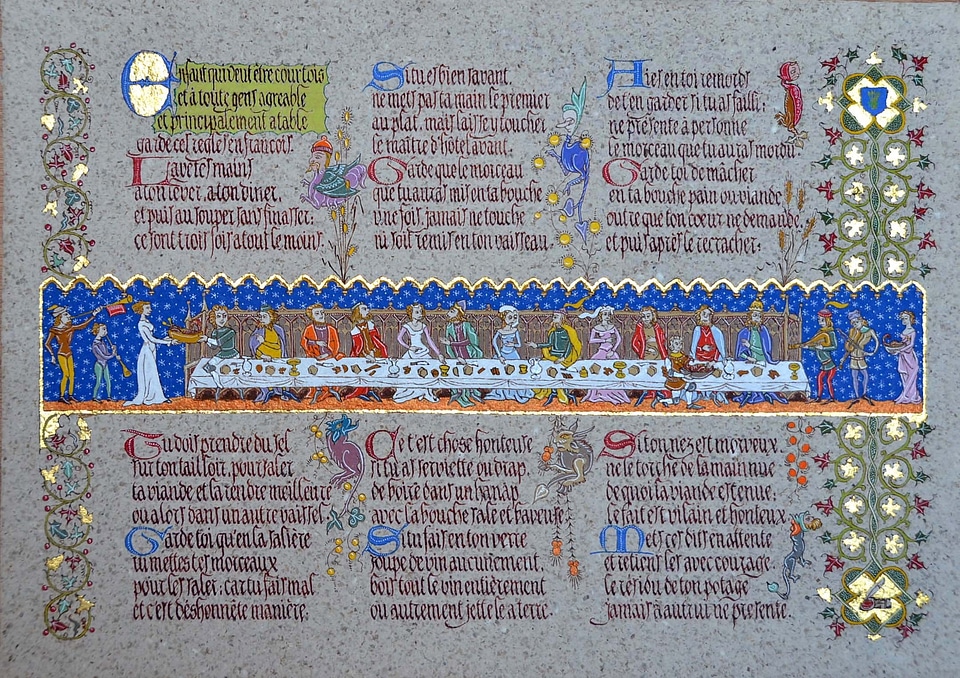 Enfant qui veut être courtois
et à toute gens agreable
et principalement a table
garde ces regles en françois.
Lave tes mains
a ton lever a ton diner,
et puis au souper sans finasser:
ce sont trois fois a tout le moins.
Si tu es bien savant,
ne mets pas ta main le premier
au plat, mais laisse y toucher
le maître d'hôtel avant.
Garde que le morceau
que tu auras mis en ta bouche
une fois, jamais ne touche
ni soit remis en ton vaisseau.
Aies en toi remords
de t'en garder si tu as failli:
ne présente à personne
le morceau que tu auras mordu.
Garde toi de mâcher
en ta bouche pain ou viande,
outre que ton coeur ne demande,
et puis après le recracher:
Tu dois prendre du sel
sur ton tailloir, pour saler
ta viande et la rendre meilleure
ou alors dans un autre vaissel
Garde toi qu'en la salière
tu mettes tes morceaux
pour les saler: car tu fais mal
et c'est deshonnête manière;
Ce t'est chose honteuse
si tu as serviette ou drap,
de boire dans un hanap
avec la bouche sale et baveuse
Si tu fais en ton verre
soupe de vin aucunement,
bois tout le vin entièrement
ou autrement jette le a terre.
Si ton nez est morveux
ne le torche de la main nue
de quoi la viande est tenue;
le fait est vilain et honteux.
Mets ces dits en attente
et retiens les avec courage
le résidu de ton potage
jamais à autrui ne présente.